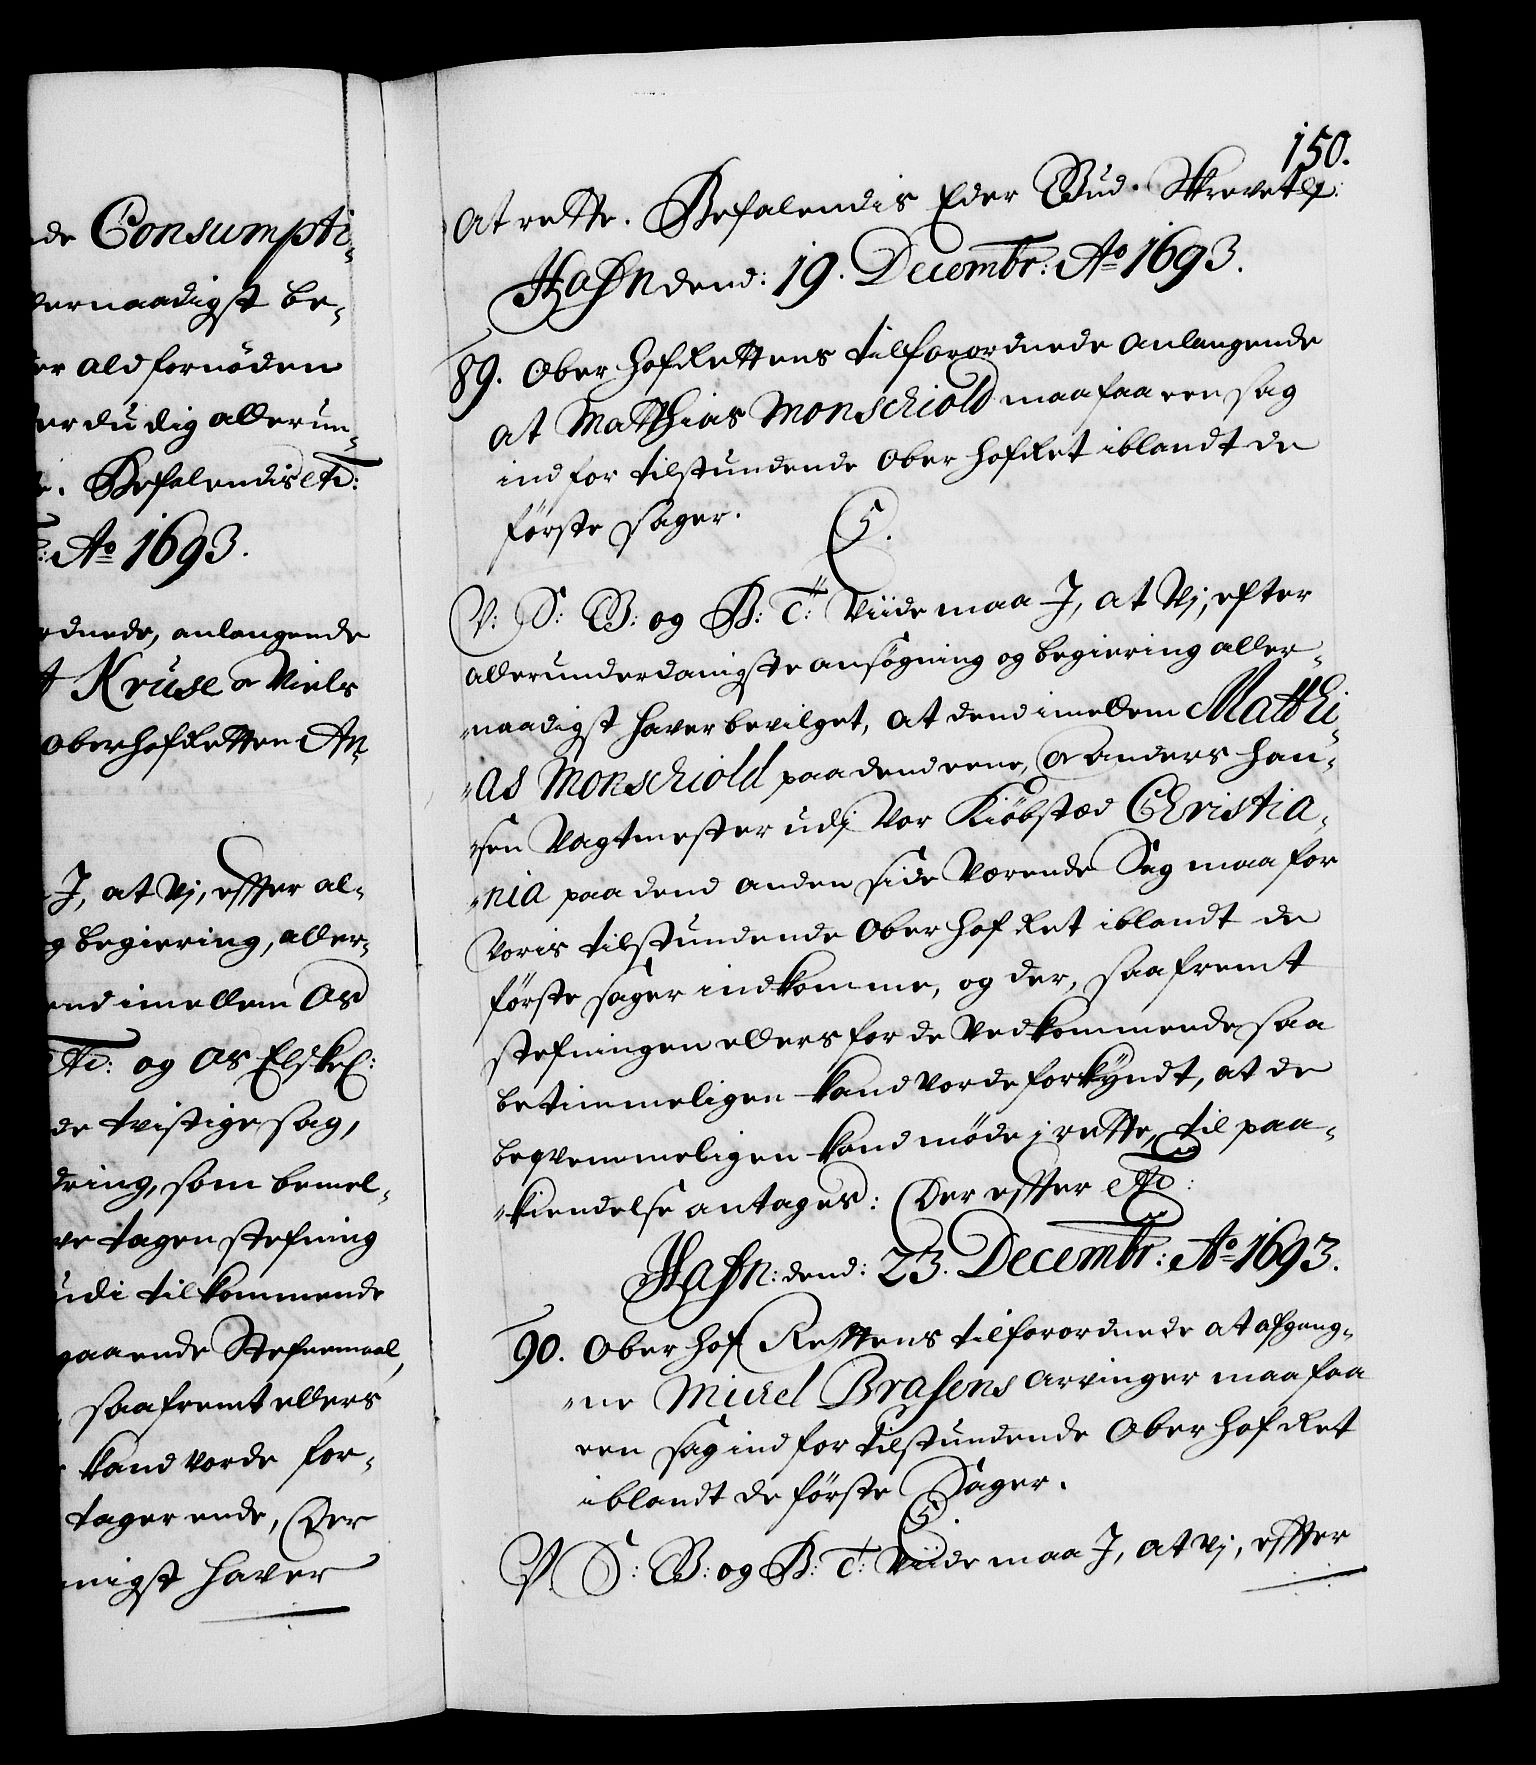 de Consumpti-
dernaadigst be-
er ald fornöden
er du dig allerun-
e. Befalendis etc:
: Ao 1693.
rdnede, anlangende
Kruse o Niels
Oberhofretten An-
J, at Vj, effter al-
g begiering, aller-
end imellem Os
etc: og Os Elskel:
de tvistige sag,
dring, som bemel-
ve tagen stefning
udi tilkommende
gaaende Stefnemaal,
saafremt ellers
kand vorde for-
tager ende, Der
nigst haver
150.
at rette. Befalendis Eder Gud. Skrevet
Hafn dend: 19. Decembr: Ao 1693.
89. Ober Hof Rettens tilforordnede anlangende
at Matthias Monschiold maa faa een sag
ind for tilstundende Ober Hof Ret iblandt de
förste sager.
C5.
V: S: G: og B: T: Viide maa J, at Vj, efter
allerunderdanigste ansögning og begiering aller-
naadigst haver bevilget, at dend imellem Matthi-
as Monschiold paa dend eene, o Anders Han-
sen Vagtmester udj Vor Kiöbsted Christia-
nia paa dend anden side Værende Sag maa for
Voris tilstundende Ober Hof Ret iblandt de
förste sager indkomme, og der, saafremt
stefningen ellers for de Vedkommende saa
betimmeligen kand vorde forkyndt, at de
beqvemmeligen kand möde i rette, til paa-
kiendelse antages: Der effter etc:
Hafn: dend: 23. Decembr: Ao 1693.
90. Ober Hof Rettens tilforordnede at afgang-
ne Michel Brasens arvinger maa faa
een sag ind for tilstundende Ober Hof Ret
iblandt de förste Sager.
C5.
V. S: G: og B: T: Viide maa J, at Vj, effter